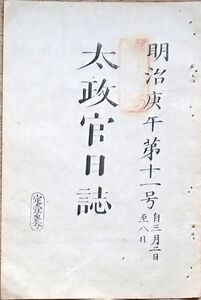 明治庚午第十一号
自三月二日
至八日
太政官日誌